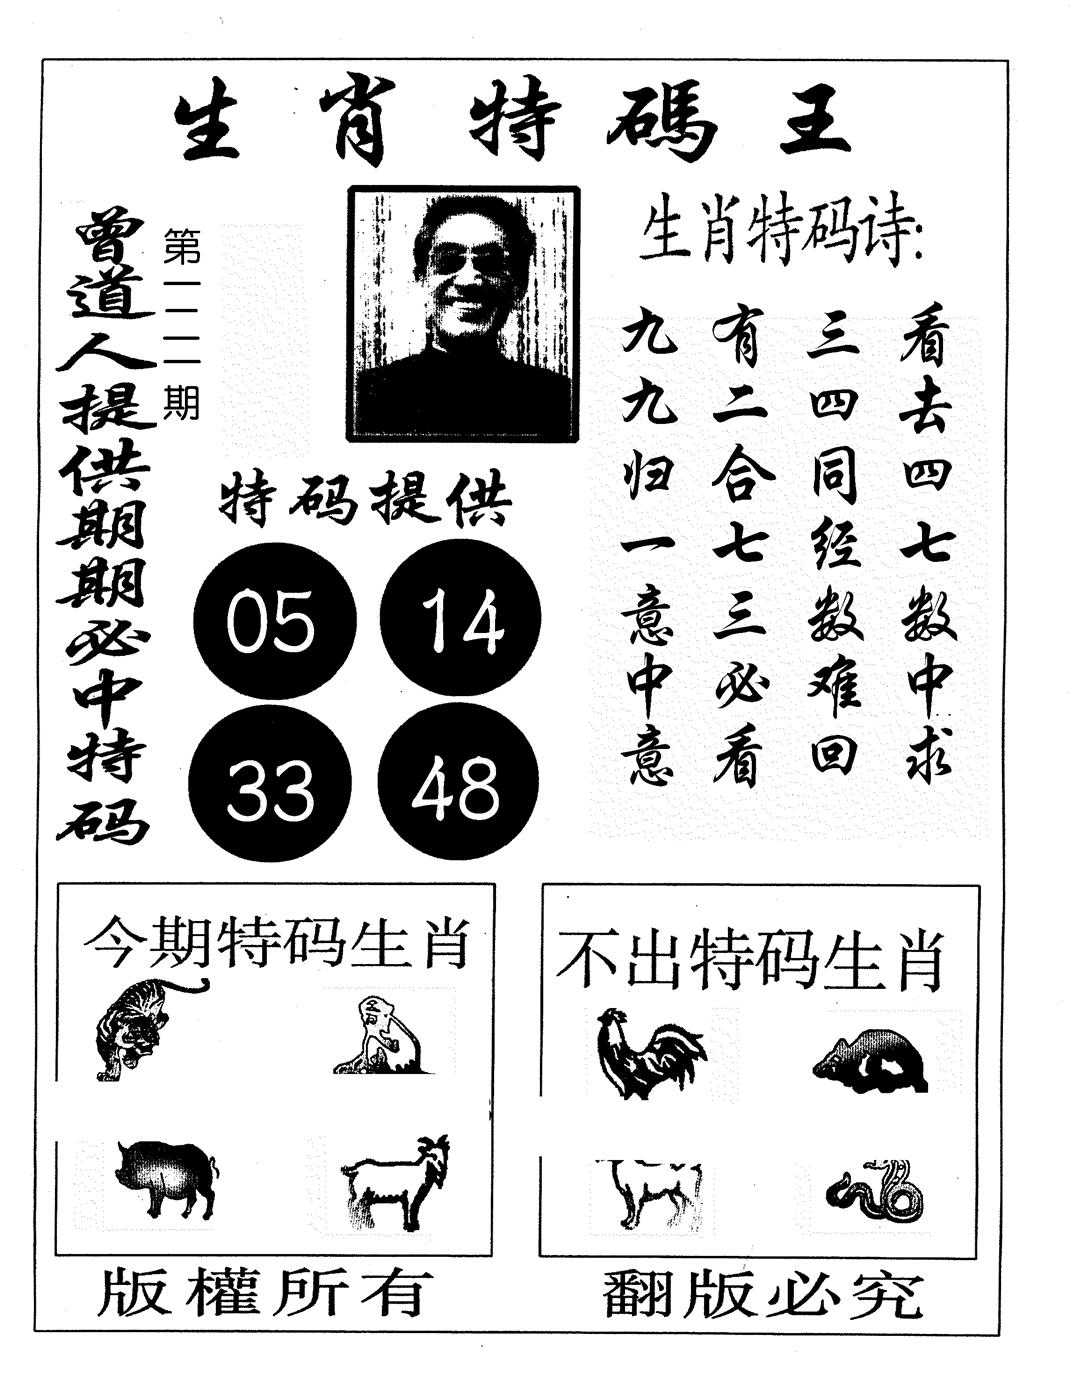 生肖特碼王
曾道人提供期期必中特码
第一一二期
生肖特码诗:
看去四七数中求
三四同经数难回
有二合七三必看
九九归一意中意
特码提供
05 14
33 48
今期特码生肖
不出特码生肖
版權所有
翻版必究